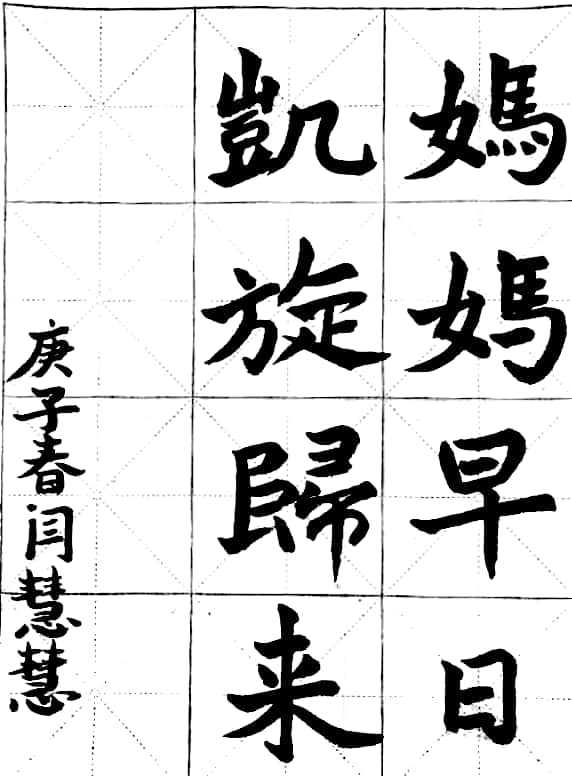 媽媽早日
凱旋歸来
庚子春闫慧慧